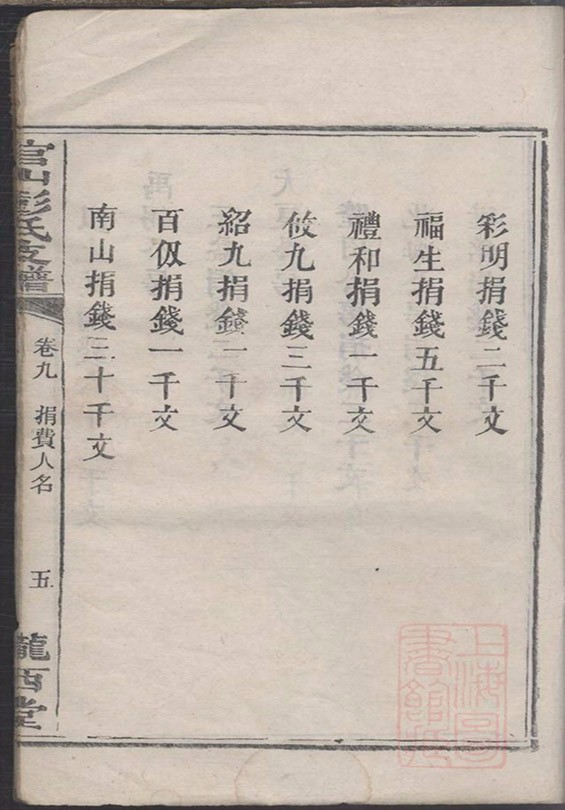 彩明捐錢二千文
福生捐錢五千文
禮和捐錢一千文
攸九捐錢三千文
紹九捐錢一千文
百伋捐錢一千文
南山捐錢三十千文
官山彭氏支譜
卷九 捐費人名
五
隴西堂
上海圖書館藏